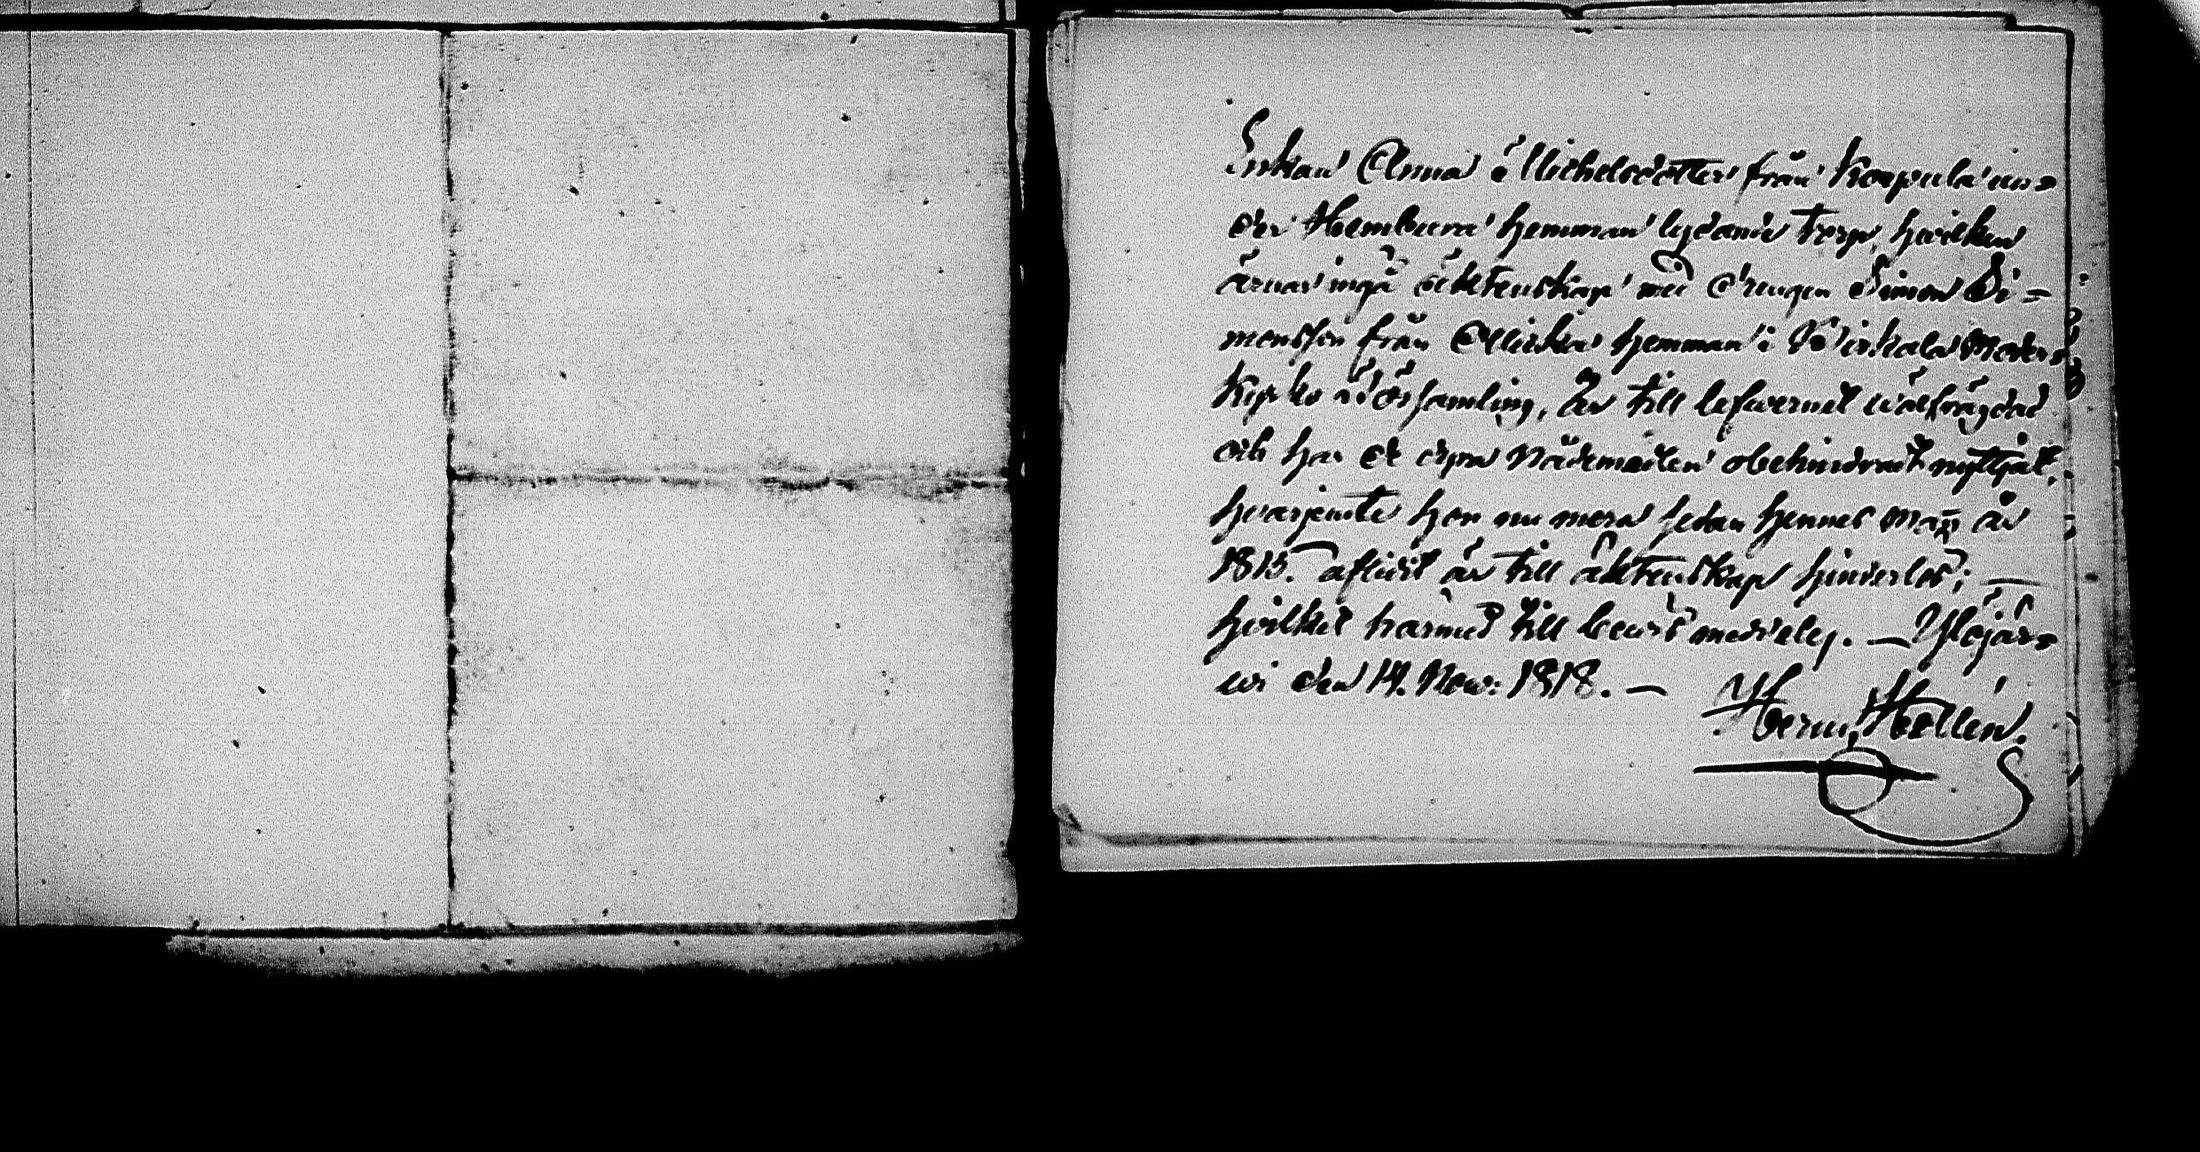 Enkan Anna Michelsdotter från Korpula un=
der Heinbura hemman lydande torp, hvilken
ärnar ingå äktenskap med Drengen Simon Si=
monsson från hemman i Birkala Moder=
kyrko Församling, är till lefvernet välfrägdad
och har de dyra Nådemedlen obehindrat nyttjat,
hvarjemte hon nu mera sedan hennes Man̄ år
1815. aflidit är till äktenskap hinderlös; —
hvilket härmed till bevis meddelas. — Ylöjär=
vi den 14. Nov: 1818. —
Herm. Hellén.